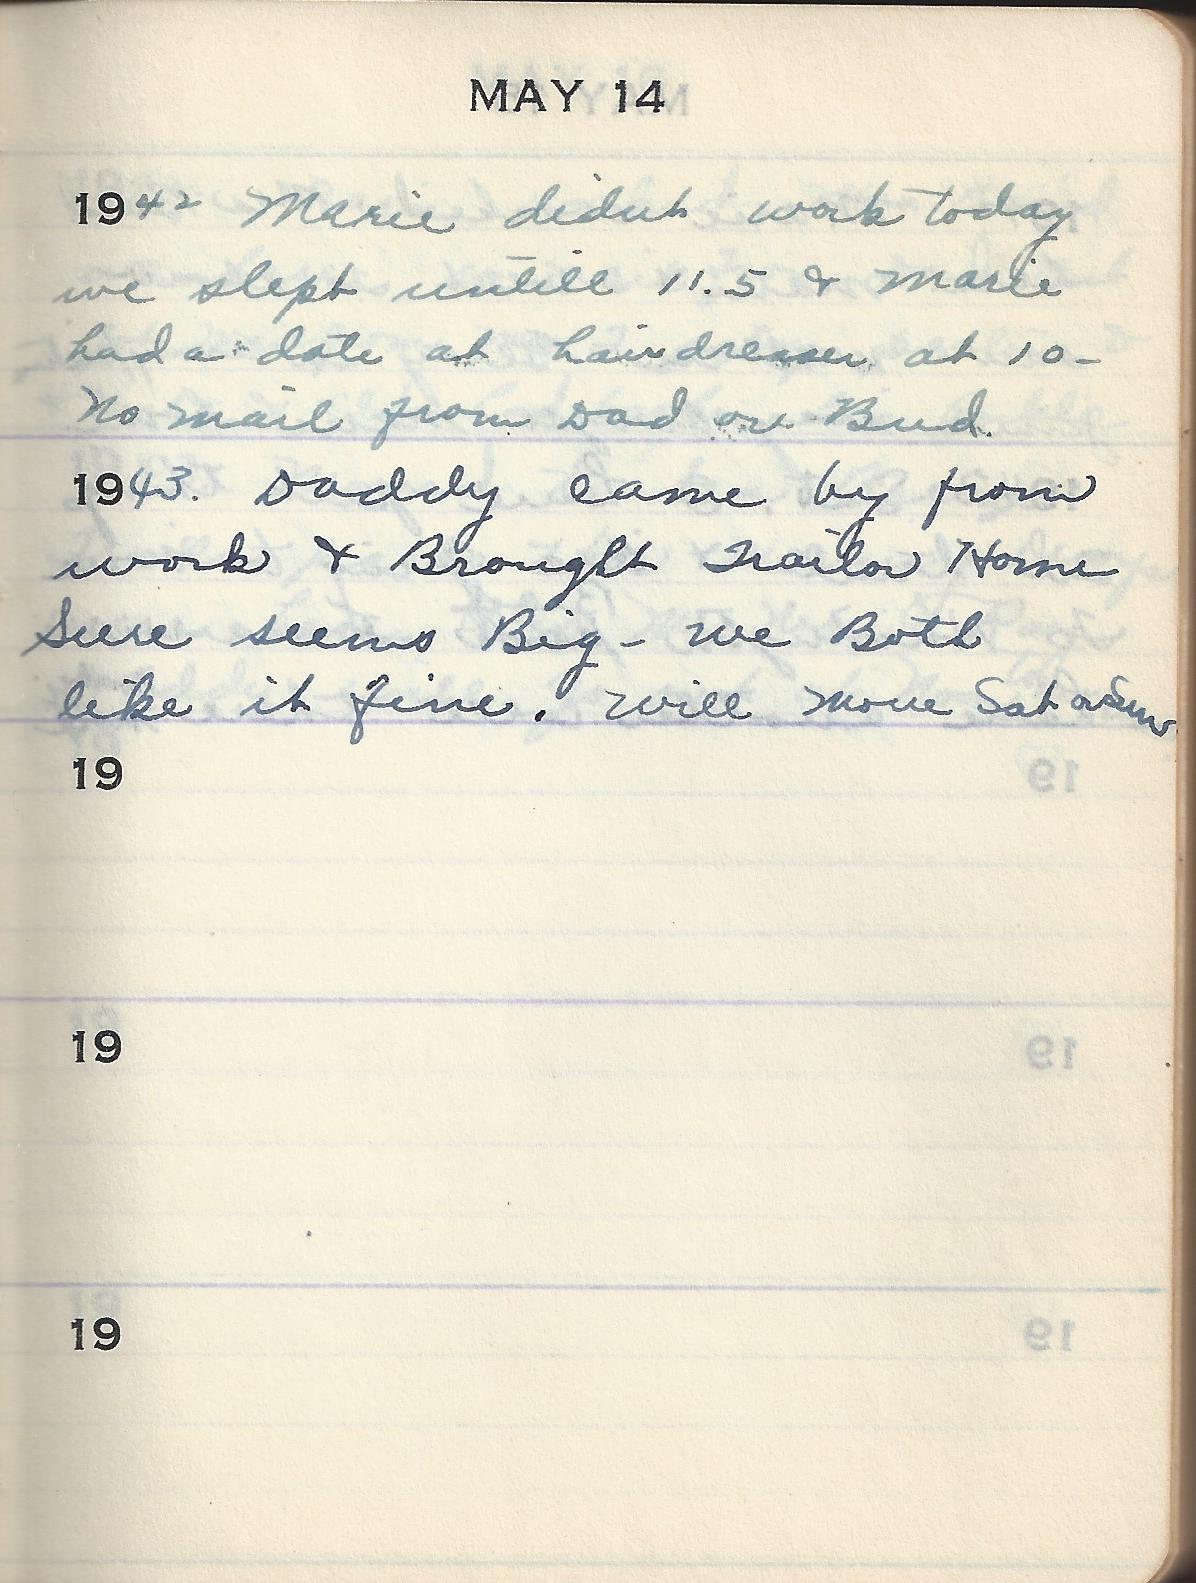 MAY 14
1942 Marie didnt work today
we slept untill 11.5 & Marie
had a date at hairdresser at 10-
No mail from Dad or Bud.
1943. Daddy came by from
work & Brought Trailor Home
Sure seems Big - we Both
like it fine. will move Sat or Sun
19
19
19